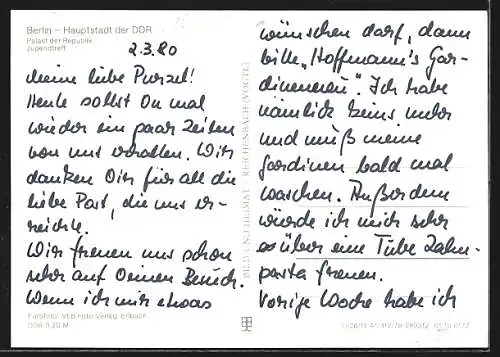 Berlin – Hauptstadt der DDR
Palast der Republik
Jugendtreff
2.3.80
Meine liebe Purzel!
Heute sollst Du mal
wieder ein paar Zeilen
von uns erhalten. Wir
danken Dir für all die
liebe Post, die uns er-
reichte.
Wir freuen uns schon
sehr auf Deinen Besuch.
Wenn ich mir etwas
Eurofoto: VEB Foto-Verlag Erlbach
DDR 0,20 M
BILD UND HEIMAT · REICHENBACH (VOGTL)
wünschen darf, dann
bitte „Hoffmann's Gar-
dinenneu". Ich habe
nämlich keins mehr
und muß meine
Gardinen bald mal
waschen. Außerdem
würde ich mich sehr
über eine Tube Zahn-
pasta freuen.
Vorige Woche habe ich